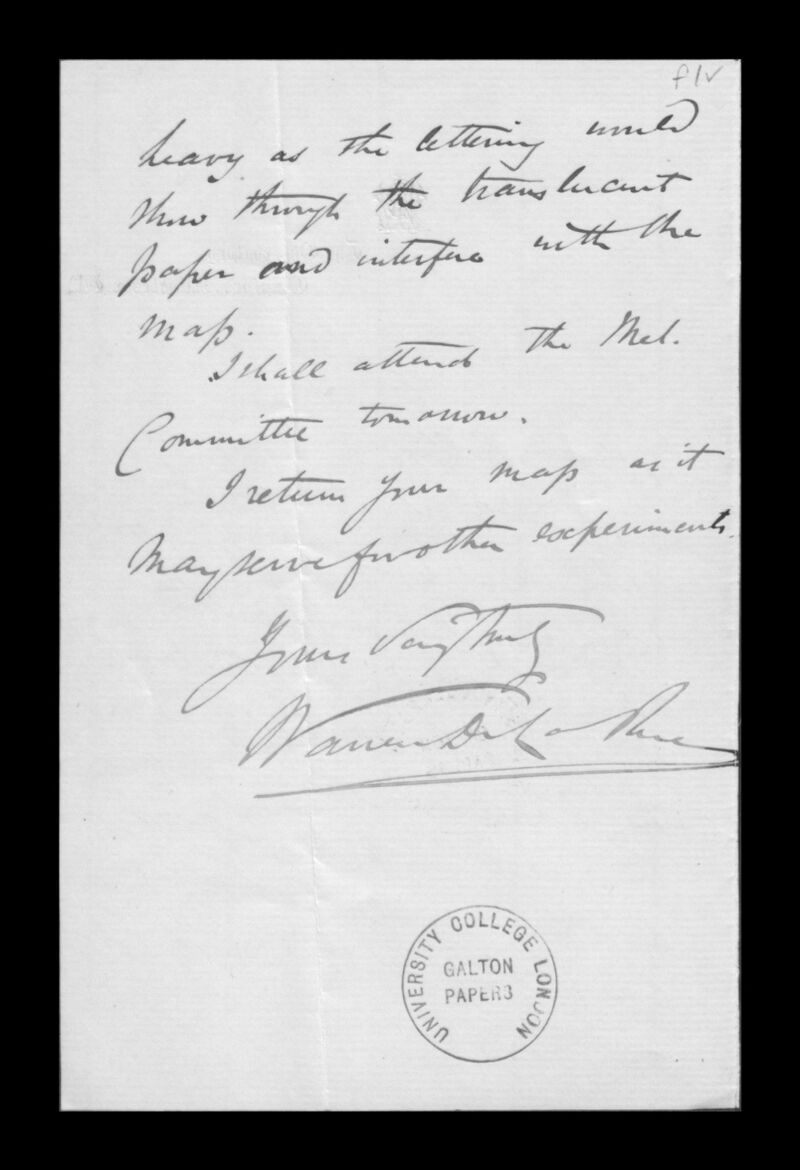 f1v
heavy as the lettering would
show through the translucent
paper and interfere with the
map.
I shall attend the Met.
Committee tomorrow.
I return your map as it
may serve for other experiments.
Yours Very Truly
Warren De La Rue
UNIVERSITY COLLEGE LONDON
GALTON
PAPERS